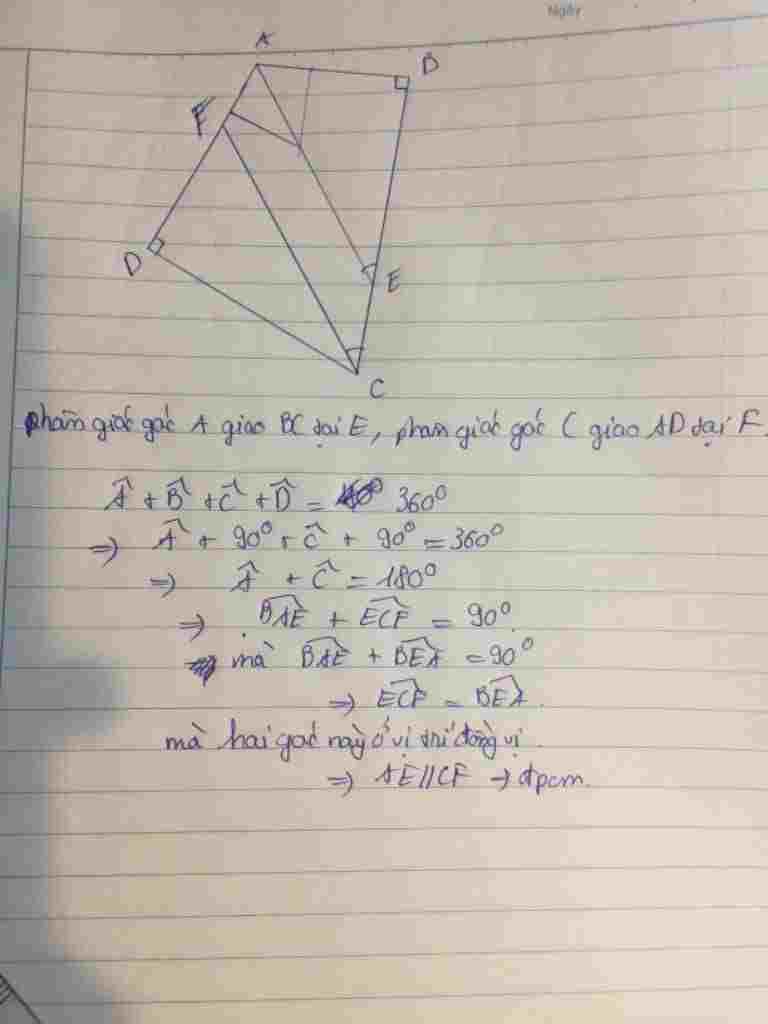 Ngày
A
B
F
D
E
C
phân giác góc A giao BC tại E, phân giác góc C giao AD tại F.
Â + B̂ + Ĉ + D̂ = 360⁰
=> Â + 90⁰ + Ĉ + 90⁰ = 360⁰
=> Â + Ĉ = 180⁰
=> BAE + ECF = 90⁰
mà BAE + BEA = 90⁰
=> ECF = BEA.
mà hai góc này ở vị trí đồng vị.
=> AE//CF -> đpcm.